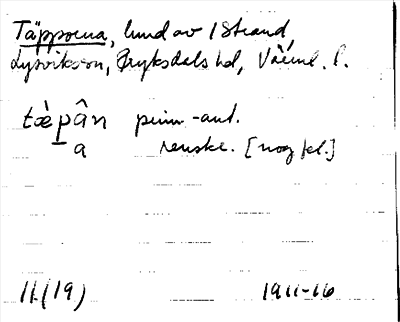 Täpporna, lund av 1 Strand,
Lysviks sn, Fryksdals hd, Värml. l.
tæ̀pân prim-ant.
a renskr. [nog fel.]
11(19) 1911-16